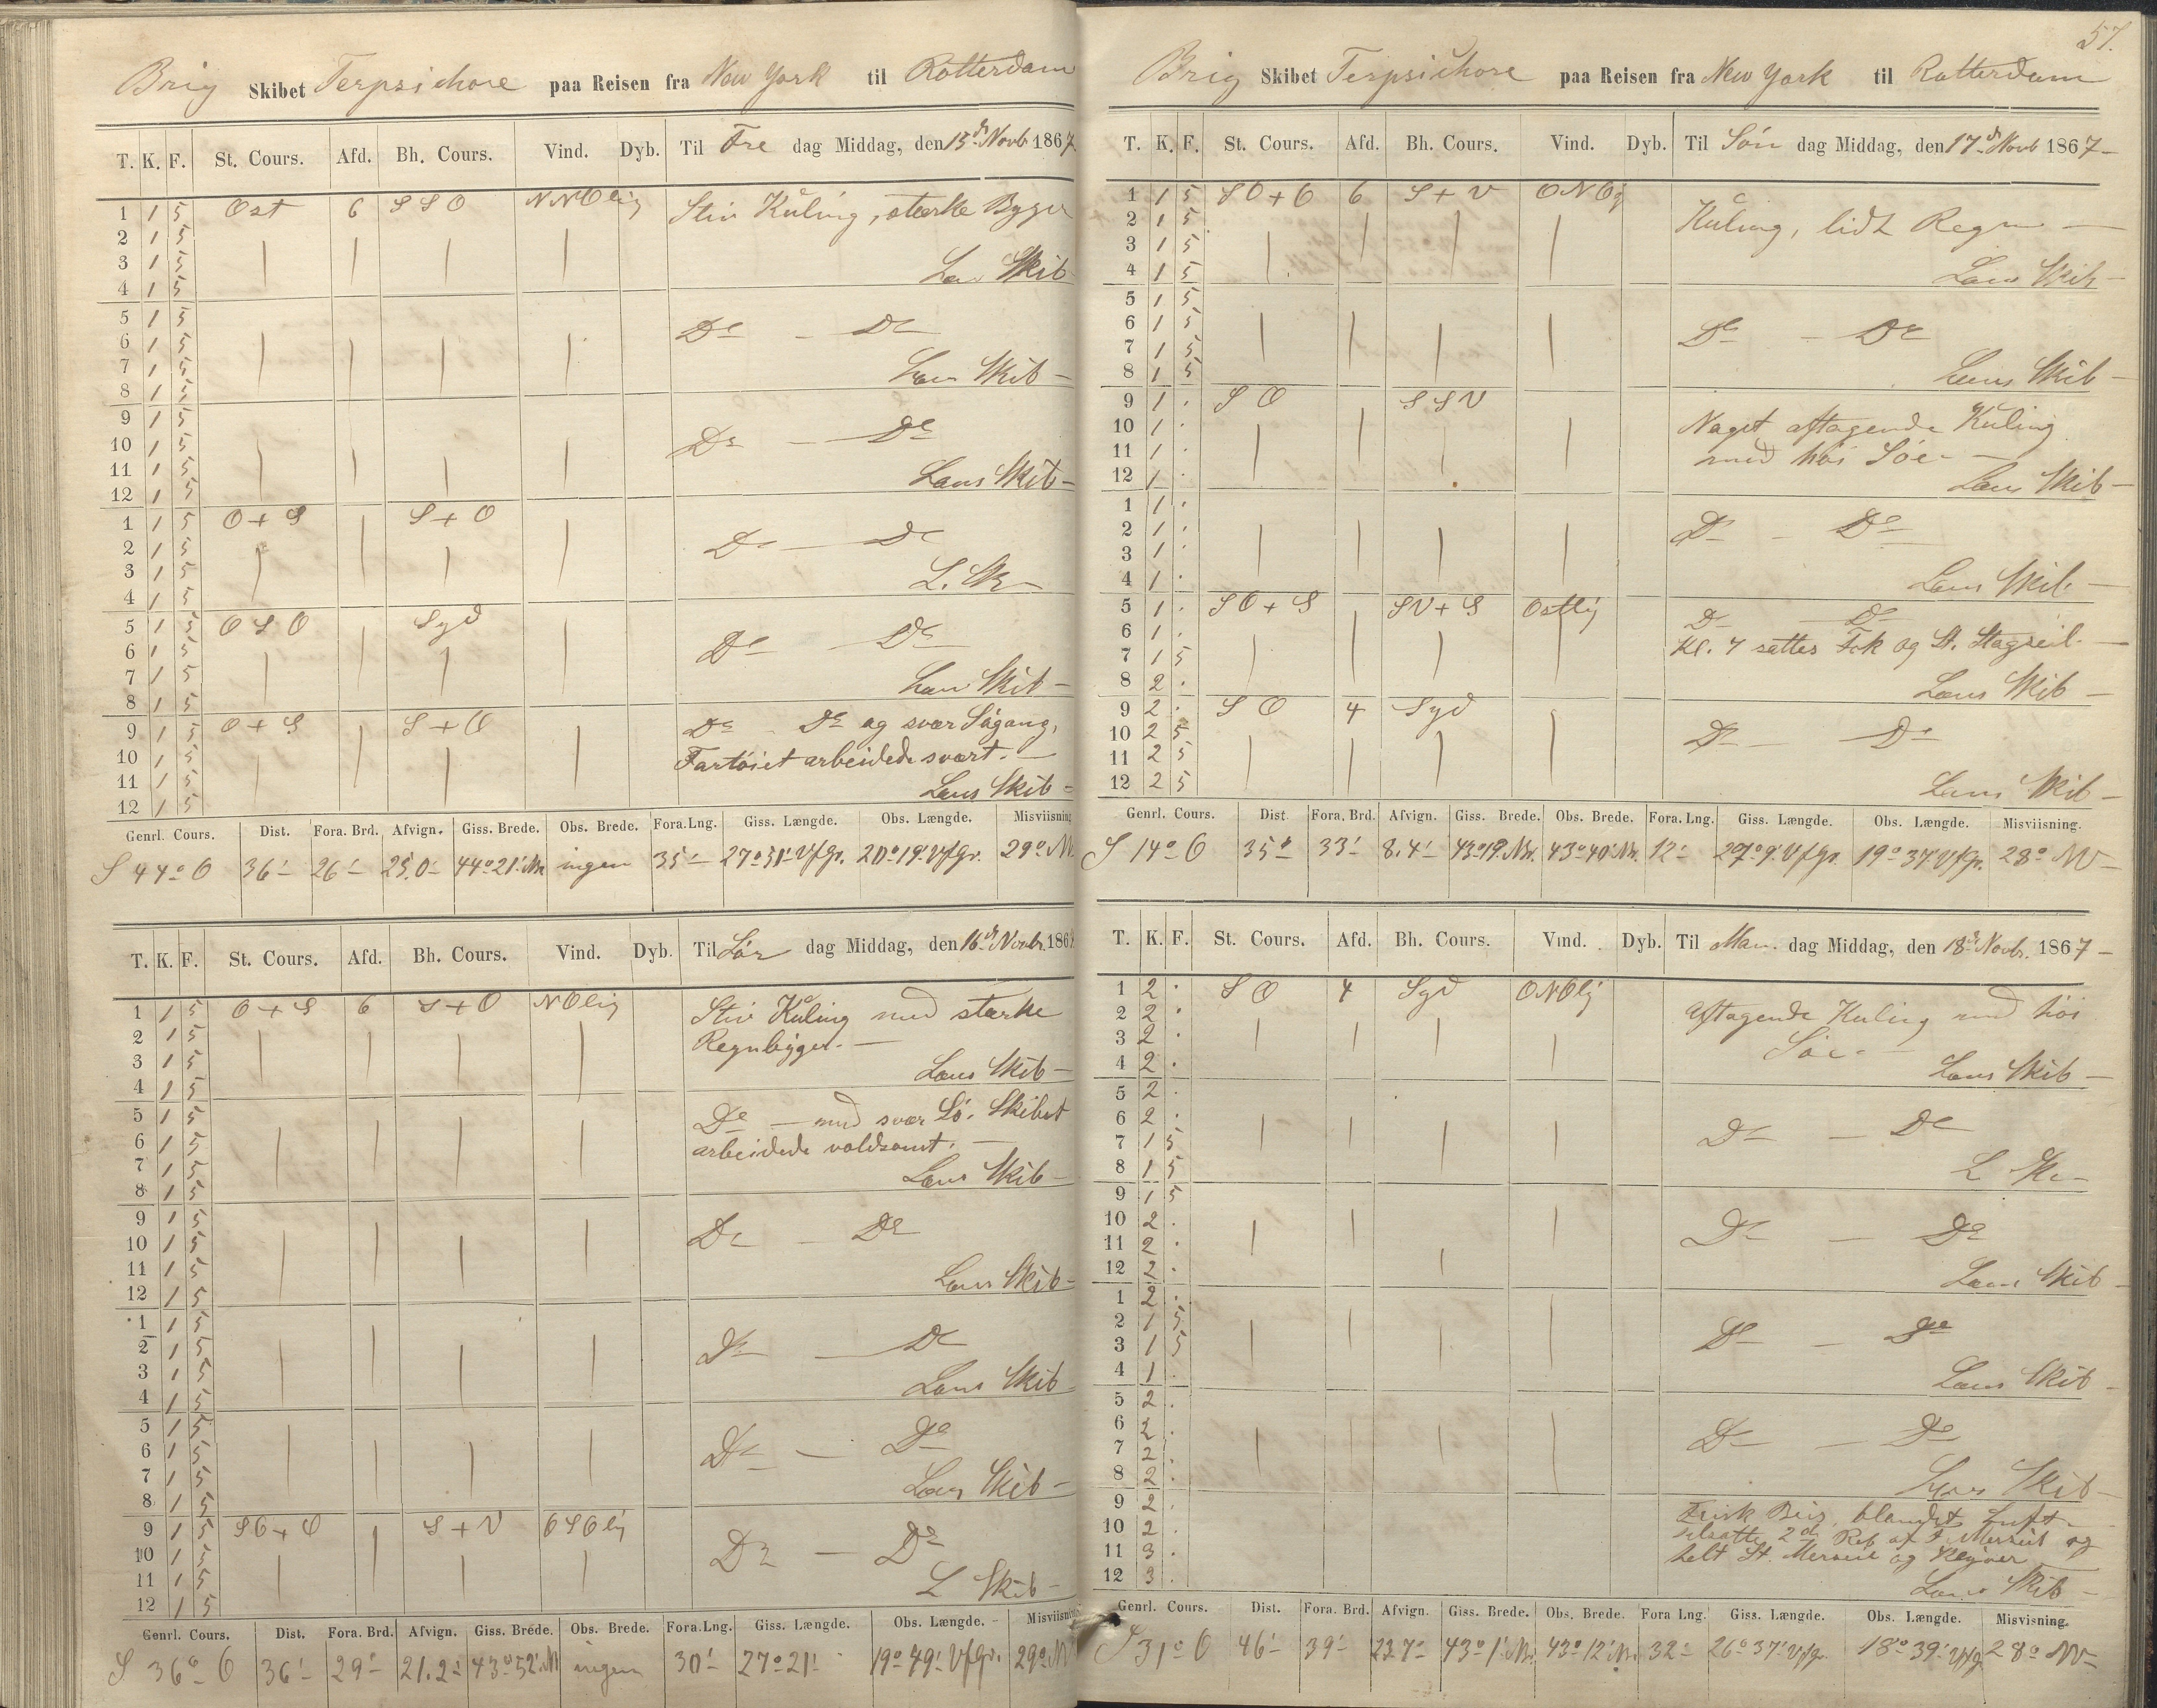 Brig Skibet Terpsichore paa Reisen fra New York til Rotterdam
T. K. F. St. Cours. Afd. Bh. Cours. Vind. Dyb. Til Fre dag Middag, den 15de Novb 1867
1 1 5 Ost 6 S S O N N O lig Stiv Kuling, stærke Byger
2 1 5
3 1 5 Læns Skib
4 1 5
5 1 5
6 1 5 Do — Do
7 1 5 Læns Skib —
8 1 5
9 1 5
10 1 5 Do — Do
11 1 5 Læns Skib —
12 1 5
1 1 5 O + S S + O
2 1 5 Do — Do
3 1 5 L. Sk —
4 1 5
5 1 5 O S O Syd
6 1 5 Do — Do
7 1 5 Læns Skib —
8 1 5
9 1 5 O + S S + O Do Do og svær Søgang,
10 1 5 Fartøiet arbeidede svært. —
11 1 5 Læns Skib —
12 1 5
Genrl. Cours. Dist. Fora. Brd. Afvign. Giss. Brede. Obs. Brede. Fora. Lng. Giss. Længde. Obs. Længde. Misviisning
S 44° O 36' 26' 25,0' 44° 21' N. ingen 35' 27° 51' V f Gr. 20° 19' V f Gr. 29° N
T. K. F. St. Cours. Afd. Bh. Cours. Vind. Dyb. Til Lør dag Middag, den 16de Novbr. 1867
1 1 5 O + S 6 S + O N O lig Stiv Kuling med stærke
2 1 5 Regnbyger. —
3 1 5 Læns Skib —
4 1 5
5 1 5 Do — med svær Sø. Skibet
6 1 5 arbeidede voldsomt. —
7 1 5 Læns Skib —
8 1 5
9 1 5
10 1 5 Do — Do
11 1 5 Læns Skib —
12 1 5
1 1 5
2 1 5 Do — Do
3 1 5 Læns Skib
4 1 5
5 1 5
6 1 5 Do — Do
7 1 5 Læns Skib —
8 1 5
9 1 5 S O + O S + V O S O lig
10 1 5 Do — Do
11 1 5 L Skib —
12 1 5
Genrl. Cours. Dist. Fora. Brd. Afvign. Giss. Brede. Obs. Brede. Fora. Lng. Giss. Længde. Obs. Længde. Misviisning
S 36° O 36' 29' 21.2' 43° 52' N ingen 30' 27° 21' 19° 49' V f Gr. 29° N
57.
Brig Skibet Terpsichore paa Reisen fra New York til Rotterdam
T. K. F. St. Cours. Afd. Bh. Cours. Vind. Dyb. Til Søn dag Middag, den 17de Novb 1867 —
1 1 5 S O + O 6 S + V O N O lg
2 1 5 Kuling, lidt Regn —
3 1 5
4 1 5 Læns Skib —
5 1 5
6 1 5 Do — Do
7 1 5
8 1 5 Læns Skib —
9 1 . S O S S V
10 1 . Noget aftagende Kuling
11 1 . med høi Søe. —
12 1 . Læns Skib —
1 1 .
2 1 . Do — Do
3 1 .
4 1 . Læns Skib —
5 1 . S O + S S V + S Ostlig Do — Do
6 1 . Kl. 7 sattes Fok og St. Stagseil. —
7 1 5
8 2 . Læns Skib —
9 2 . S O 4 Syd
10 2 5 Do — Do
11 2 5
12 2 5 Læns Skib —
Genrl. Cours. Dist Fora. Brd. Afvign. Giss. Brede. Obs. Brede. Fora. Lng. Giss. Længde. Obs. Længde. Misviisning.
S 14° O 35' 33' 8.4' 43° 19' N. 43° 40' N. 12' 27° 9' V f Gr. 19° 37' V f Gr. 28° NV —
T. K. F. St. Cours. Afd. Bh. Cours. Vind. Dyb. Til Man. dag Middag, den 18de Novbr. 1867 —
1 2 . S O 4 Syd O N O lig
2 2 . Aftagende Kuling med høi
3 2 . Søe. —
4 2 . Læns Skib —
5 2 .
6 2 . Do — Do
7 1 5
8 1 5 L Sk —
9 1 5
10 2 . Do — Do
11 2 .
12 2 . Læns Skib —
1 2 .
2 1 5 Do — Do
3 1 5
4 1 . Læns Skib —
5 2 .
6 2 . Do — Do
7 2
8 2 . Læns Skib —
9 2 . Frisk Bris, blandet Luft —
10 2 . udsatte 2det Reb af F. Mersseil og
11 3 . helt St. Mersseil og Klyver —
12 3 . Læns Skib —
Genrl. Cours. Dist. Fora. Brd. Afvign. Giss. Brede. Obs. Brede. Fora Lng. Giss. Længde. Obs. Længde. Misvisning.
S 31° O 46' 39' 23.7' 43° 1' N. 43° 12' N. 32' 26° 37' V f Gr. 18° 39' V f G. 28° NV —